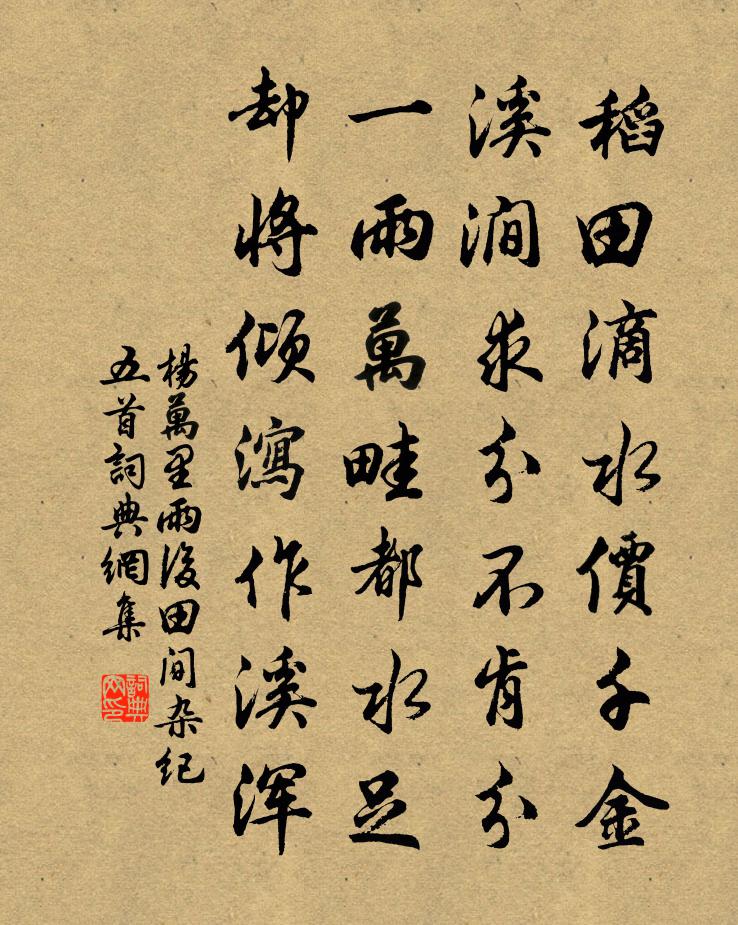 稻田滴水價千金
溪澗求分不肯分
一雨萬畦都水足
却將傾瀉作溪浑
楊萬里雨後田间杂纪
五首詞典網集
詞典
网印